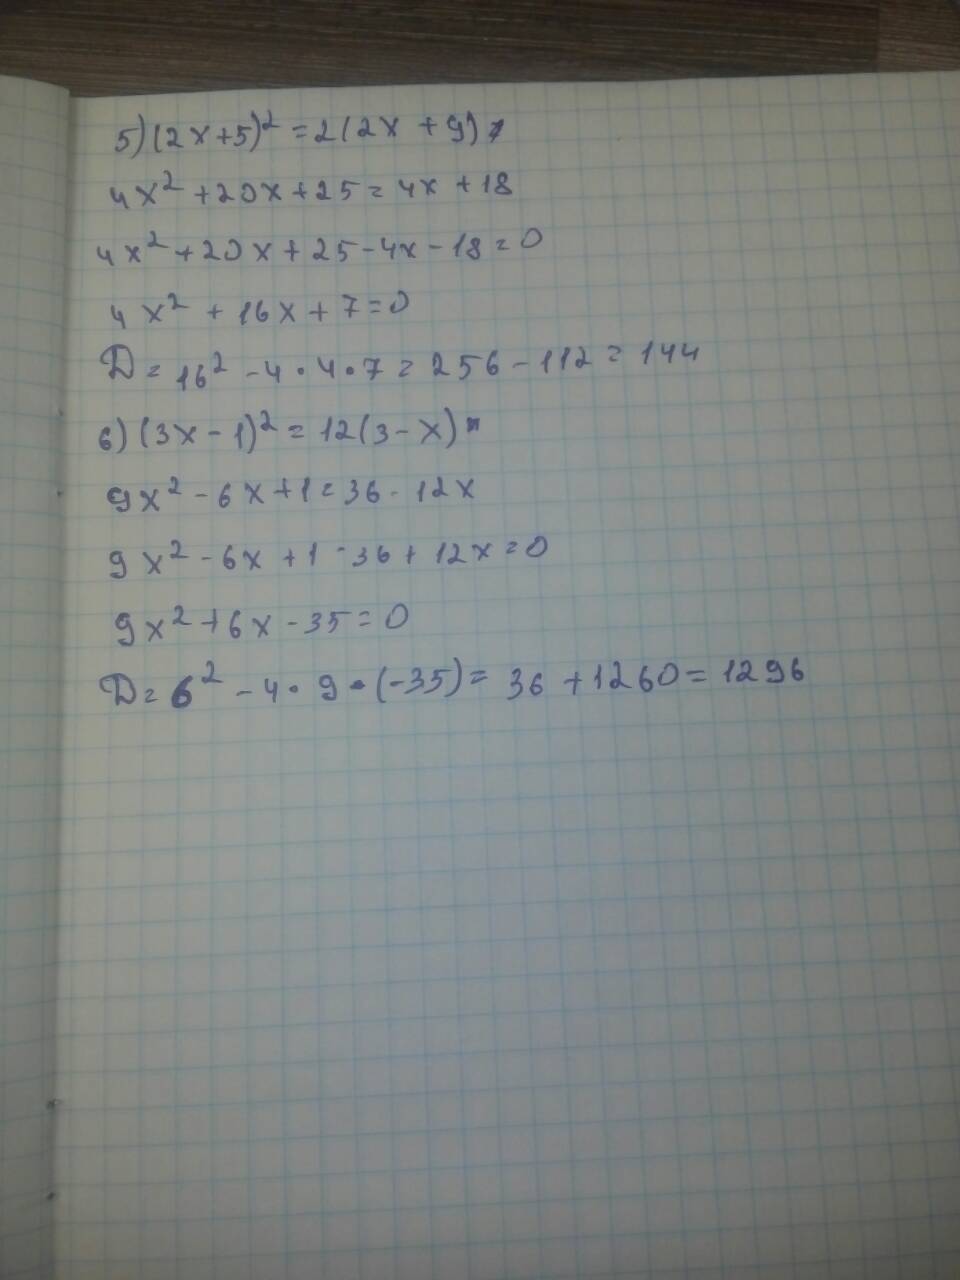 5) (2x+5)² = 2(2x + 9)
4x² + 20x + 25 = 4x + 18
4x² + 20x + 25 - 4x - 18 = 0
4x² + 16x + 7 = 0
D = 16² - 4 · 4 · 7 = 256 - 112 = 144
6) (3x - 1)² = 12(3 - x)
9x² - 6x + 1 = 36 - 12x
9x² - 6x + 1 - 36 + 12x = 0
9x² + 6x - 35 = 0
D = 6² - 4 · 9 · (-35) = 36 + 1260 = 1296